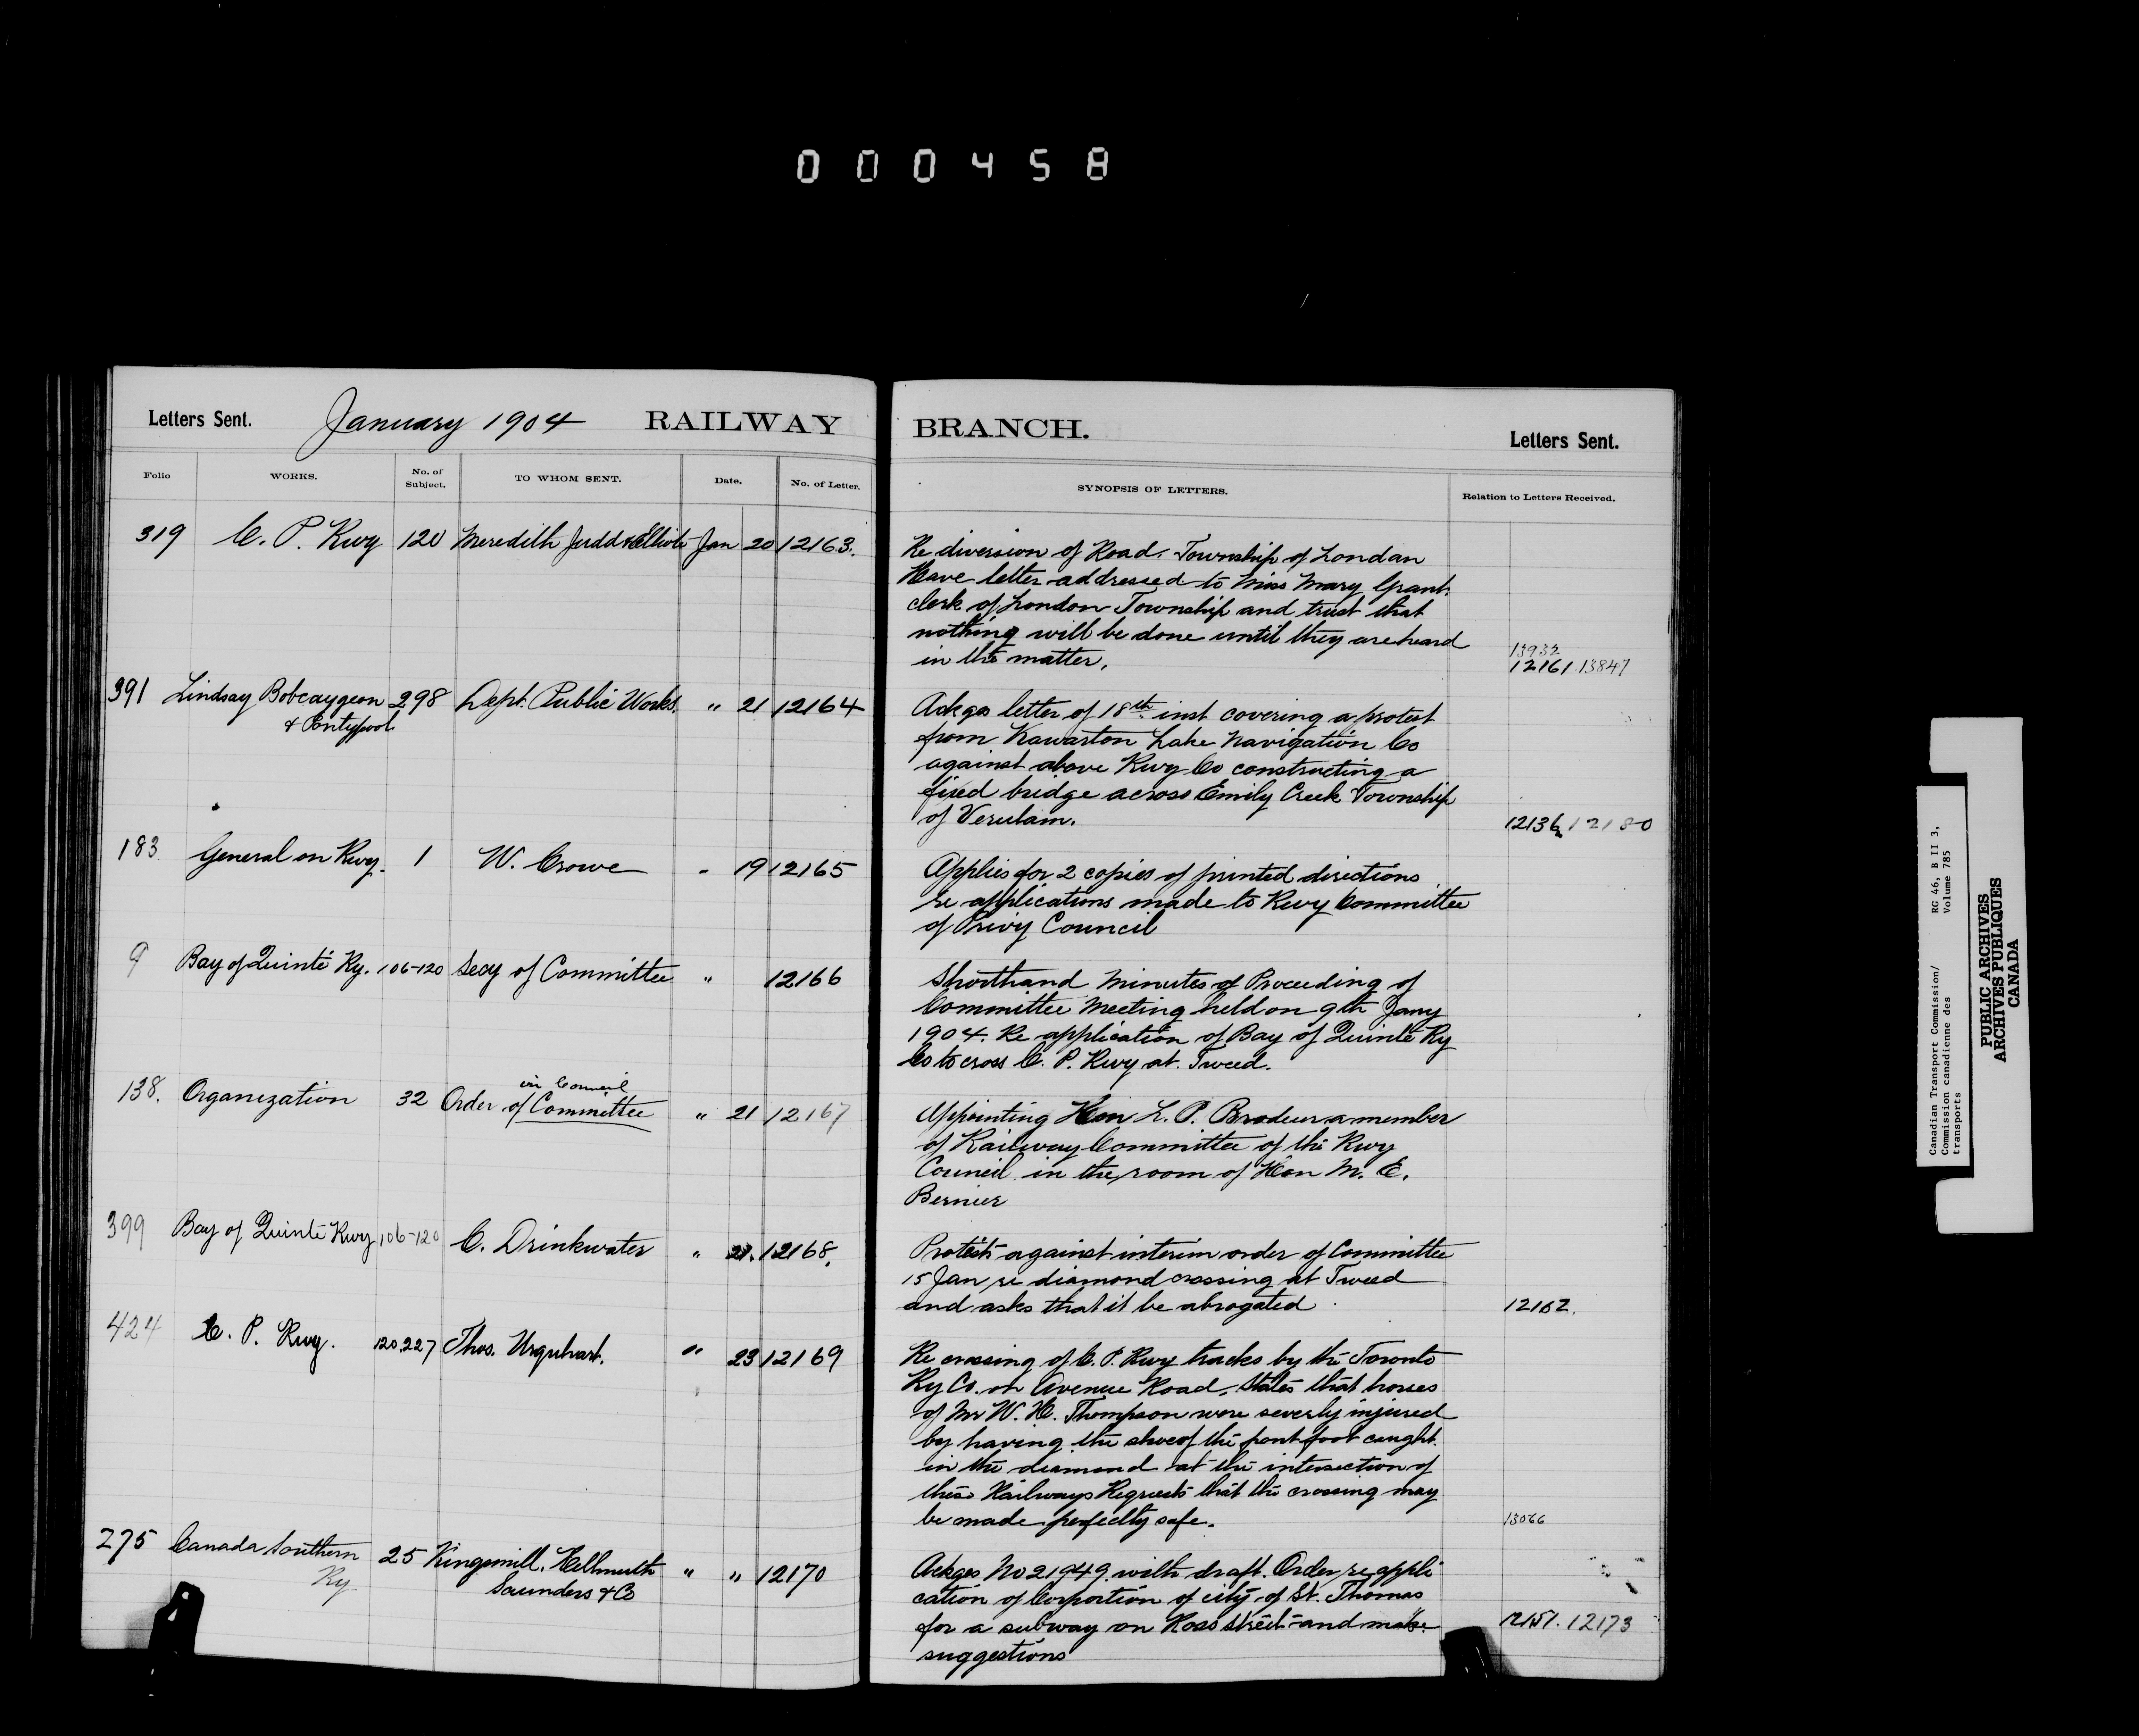 000458
Letters Sent. January 1904 RAILWAY BRANCH. Letters Sent.
Folio WORKS. No. of Subject. TO WHOM SENT. Date. No. of Letter. SYNOPSIS OF LETTERS. Relation to Letters Received.
319 C. P. Rwy 120 Meredith Judd & Elliott Jan 20 12163.
Re diversion of Road. Township of London
Have letter addressed to Miss Mary Grant.
clerk of London Township and trust that
nothing will be done until they are heard
in the matter.
13932
12161 13847
391 Lindsay Bobcaygeon 298 Dept. Public Works. " 21 12164
& Pontypool
Ackgs letter of 18th inst covering a protest
from Kawarton Lake Navigation Co
against above Rwy Co constructing a
fixed bridge across Emily Creek Township
of Verulam.
12136 12180
183 General on Rwy. 1 W. Crowe " 19 12165
Applies for 2 copies of printed directions
re applications made to Rwy Committee
of Privy Council
9 Bay of Quinté Ry. 106-120 Secy of Committee " 12166
Shorthand Minutes of Proceeding of
Committee Meeting held on 9th Jany
1904. Re application of Bay of Quinté Ry
Co to cross C. P. Rwy at Tweed.
in Council
138. Organization 32 Order of Committee " 21 12167
Appointing Hon L. P. Brodeur a member
of Railway Committee of the Rwy
Council in the room of Hon M. E.
Bernier
399 Bay of Quinté Rwy 106-120 C. Drinkwater " 21. 12168.
Protest against interim order of Committee
15 Jan re diamond crossing at Tweed
and asks that it be abrogated
12162.
424 C. P. Rwy. 120.227 Thos. Urquhart. " 23 12169
Re crossing of C. P. Rwy tracks by the Toronto
Ry Co. on Avenue Road, states that horses
of Mr W. H. Thompson were severly injured
by having the shoe of the font foot caught
in the diamond at the intersection of
these Railways Requests that the crossing may
be made perfectly safe.
13066
275 Canada Southern 25 Kingsmill, Hellmuth " " 12170
Ry. Saunders & Co
Ackges No 21949 with draft Order re appli
cation of Corportion of city of St. Thomas
for a subway on Ross Street and make
suggestions
12151. 12173
Canadian Transport Commission/ RG 46, B II 3,
Commission canadienne des Volume 785
transports
PUBLIC ARCHIVES
ARCHIVES PUBLIQUES
CANADA